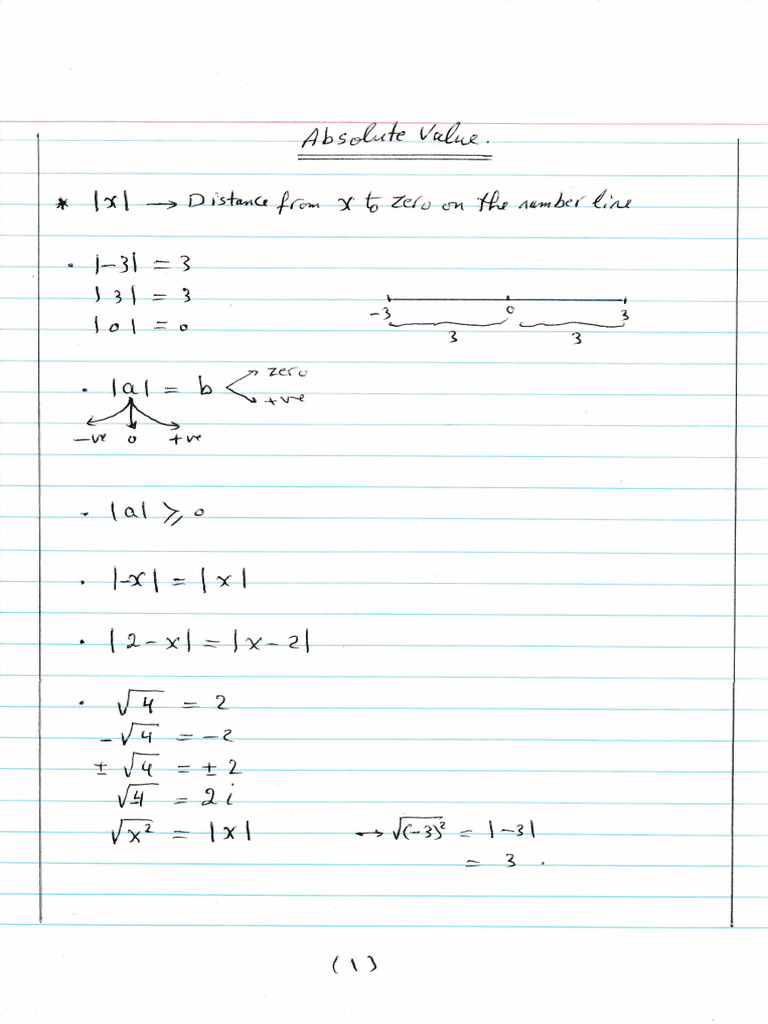 Absolute Value.
* |x| → Distance from x to zero on the number line
· |-3| = 3
|3| = 3
|0| = 0
-3 0 3
3 3
· |a| = b zero
+ve
-ve 0 +ve
- |a| ⩾ 0
· |-x| = |x|
· |2-x| = |x-2|
· √4 = 2
-√4 = -2
± √4 = ± 2
√-4 = 2i
√x² = |x| → √(-3)² = |-3|
= 3 .
(1)